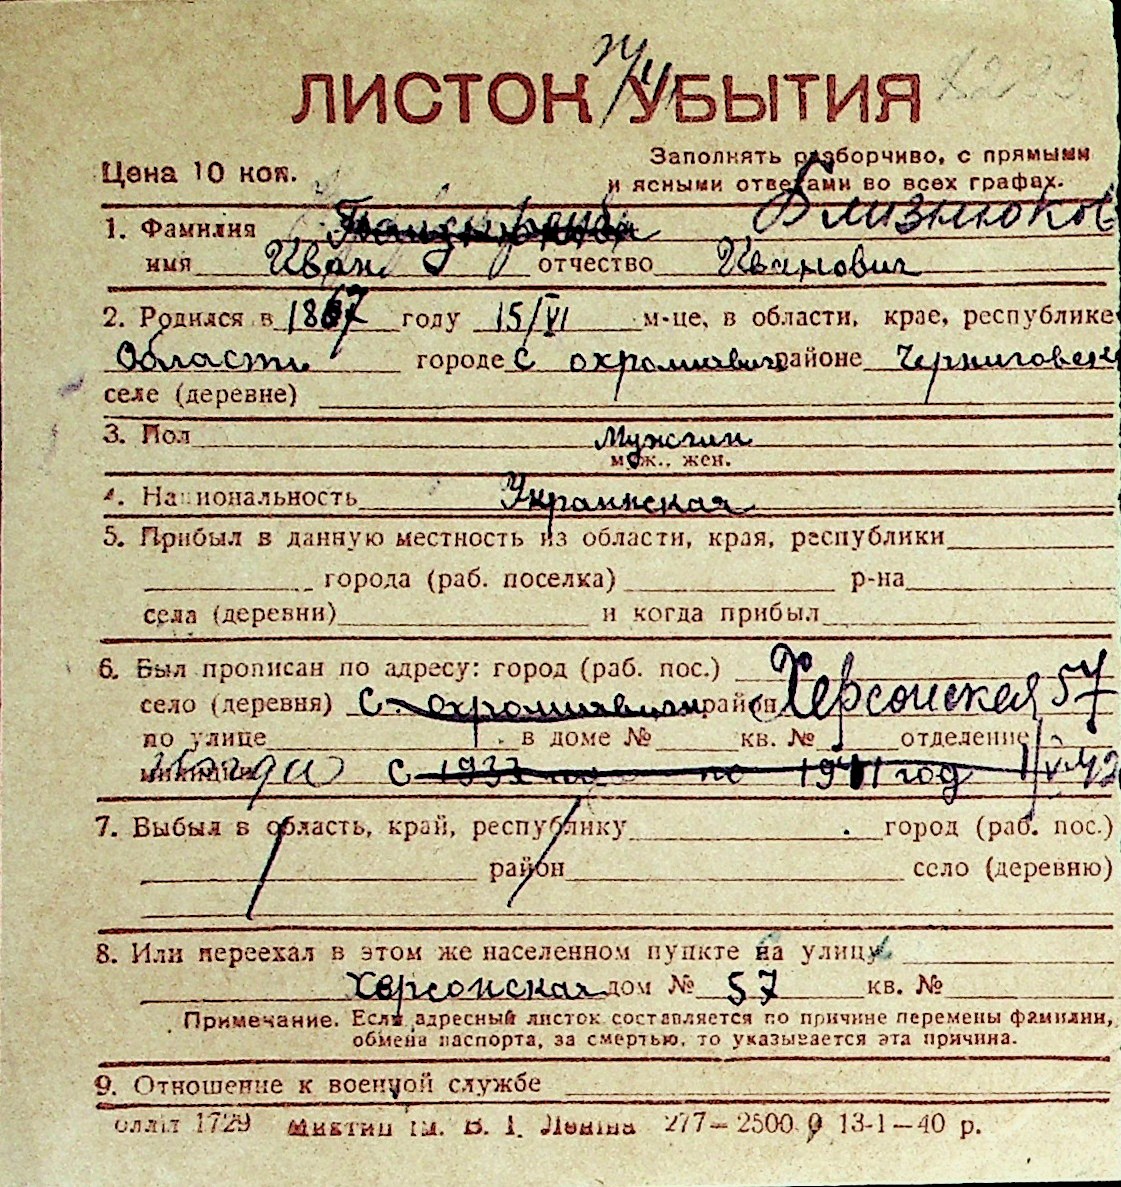 ЛИСТОК УБЫТИЯ
Цена 10 коп.
Заполнять разборчиво, с прямыми
и ясными ответами во всех графах.
1. Фамилия Близнюков
имя Иван отчество Иванович
2. Родился в 1867 году 15/VI м-це, в области, крае, республике
Области городе с охрамиевич районе Черниговск
селе (деревне)
3. Пол Мужчин
муж., жен.
4. Национальность Украинская
5. Прибыл в данную местность из области, края, республики
города (раб. поселка) р-на
села (деревни) и когда прибыл
6. Был прописан по адресу: город (раб. пос.)
село (деревня) С. район Херсонская 57
по улице в доме № кв. № отделение
милиции с 1933 по 1941 год 1/V-42
7. Выбыл в область, край, республику город (раб. пос.)
район село (деревню)
8. Или переехал в этом же населенном пункте на улицу
Херсонская дом № 57 кв. №
Примечание. Если адресный листок составляется по причине перемены фамилии,
обмена паспорта, за смертью, то указывается эта причина.
9. Отношение к военной службе
1729 277—2500 13-1—40 р.